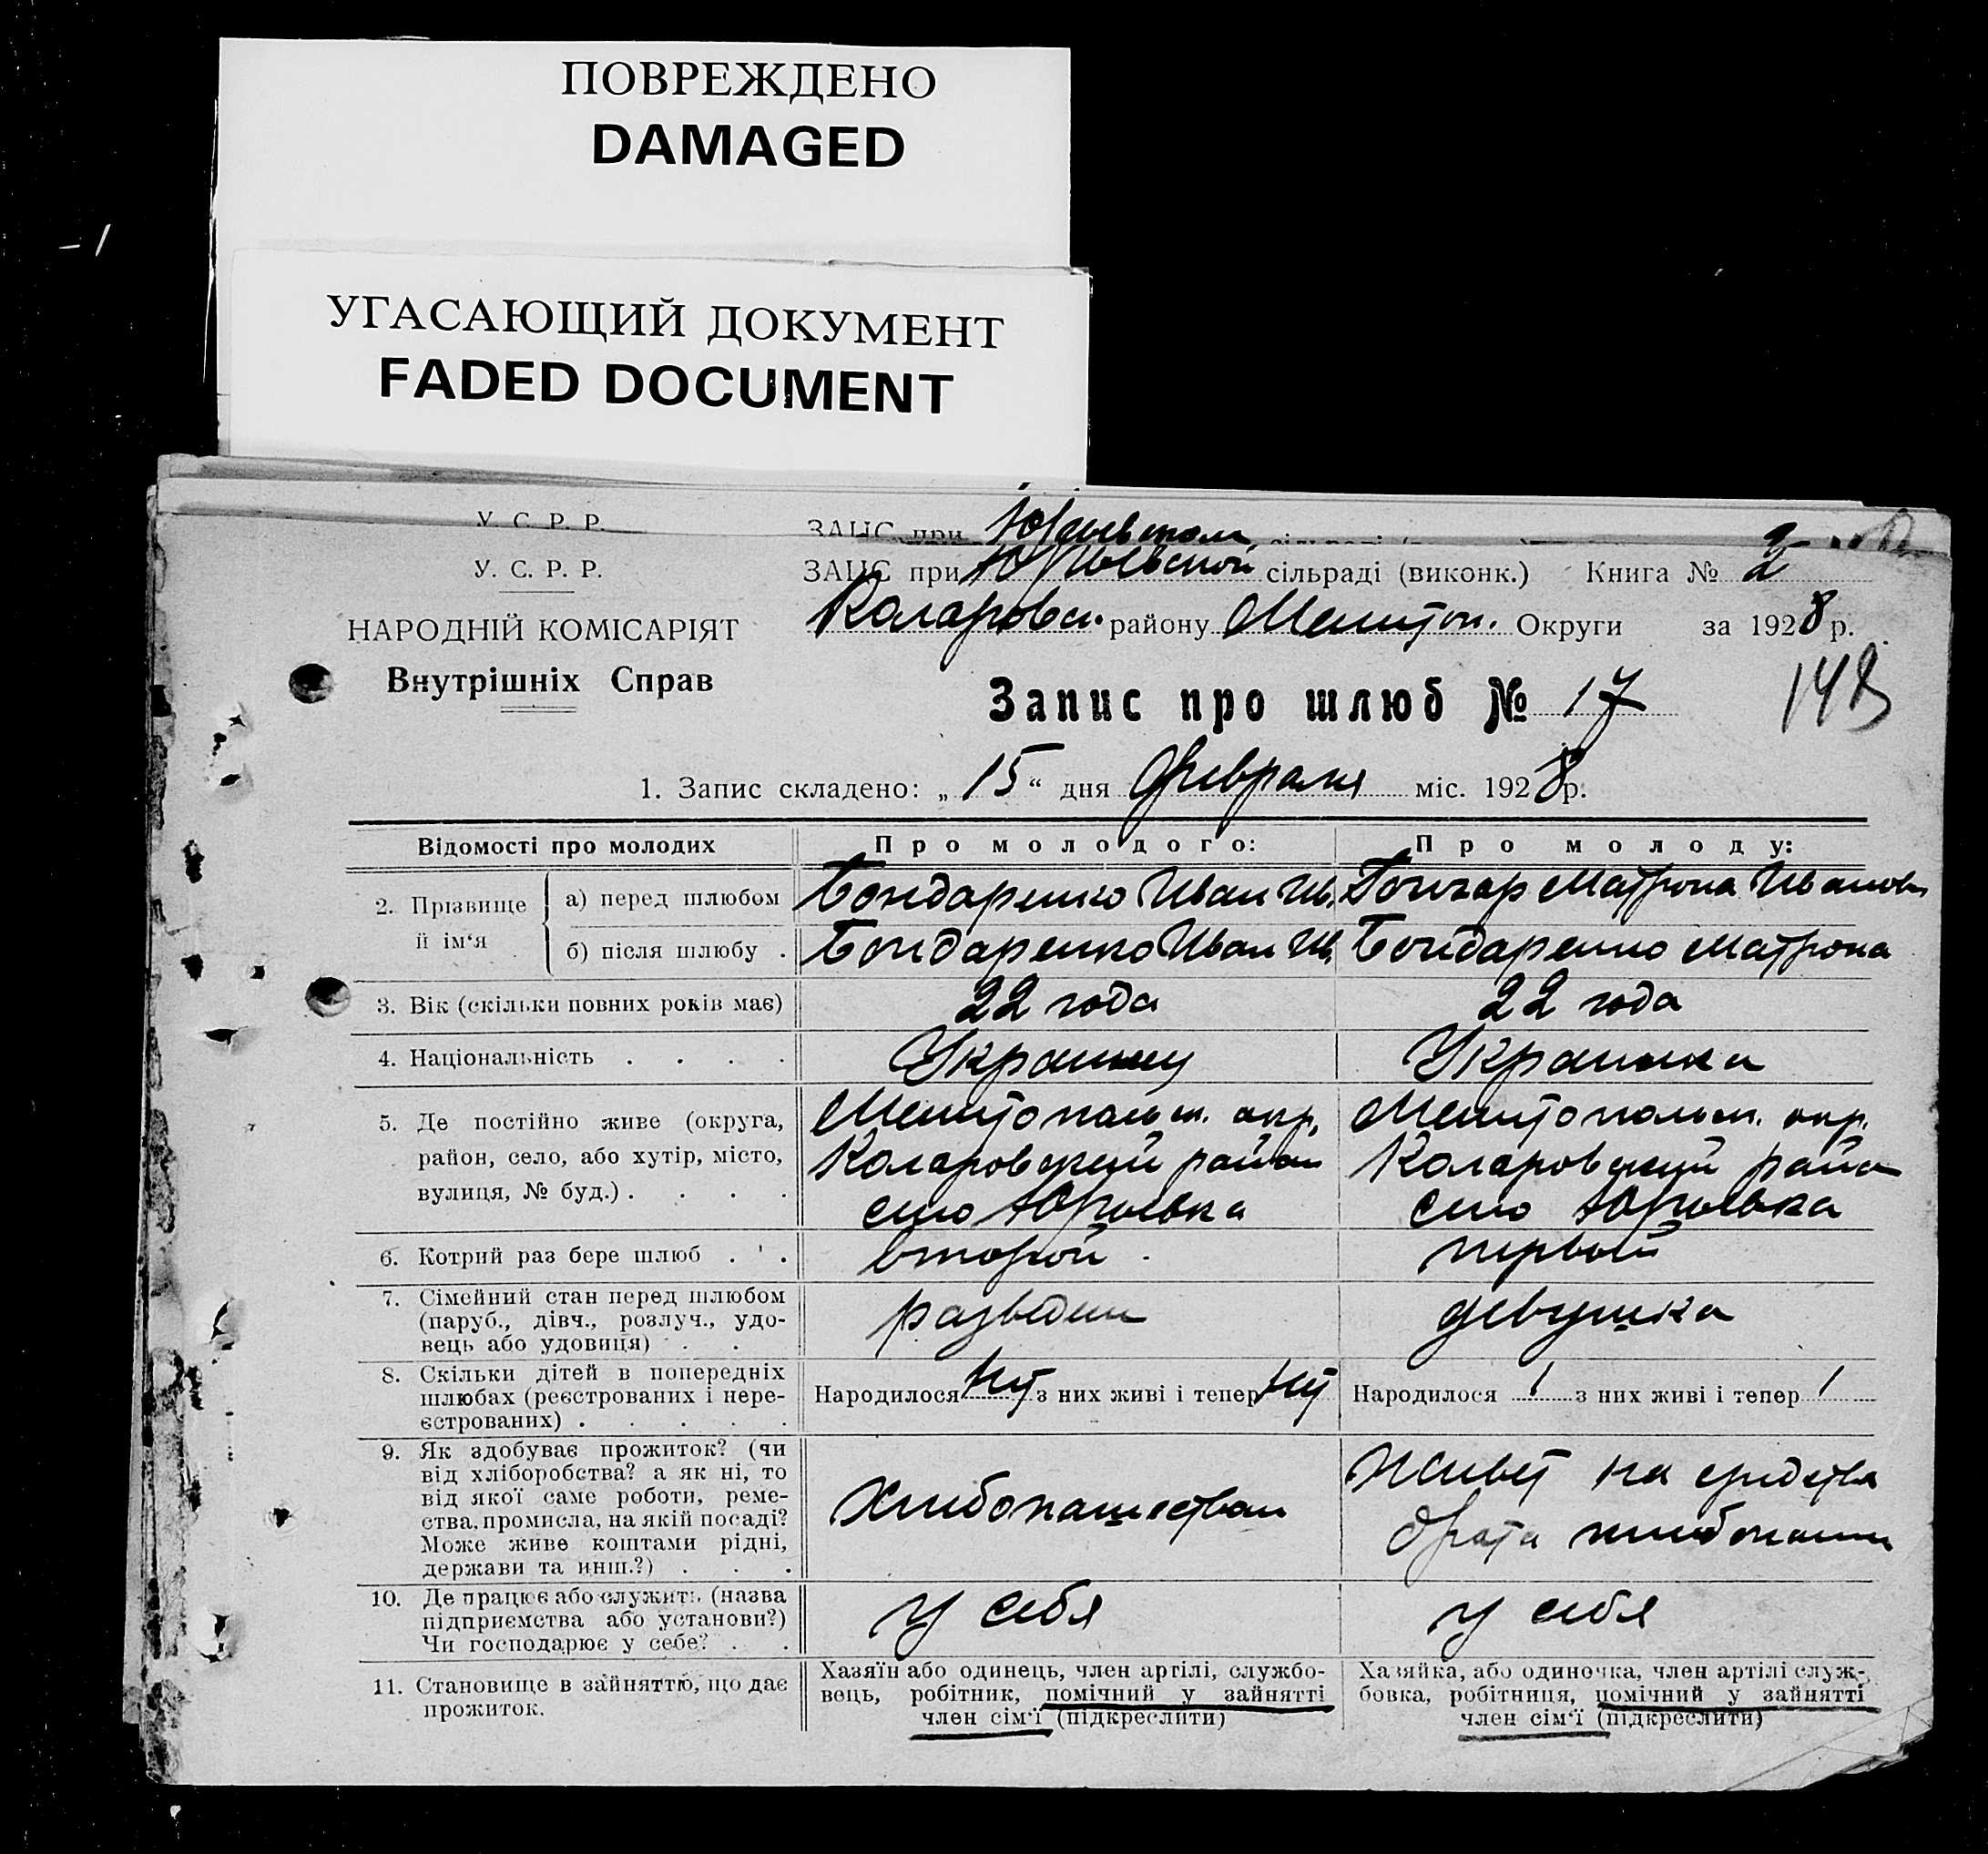 ПОВРЕЖДЕНО
DAMAGED
УГАСАЮЩИЙ ДОКУМЕНТ
FADED DOCUMENT
У. С. Р. Р.
ЗАЦС при
2
У. С. Р. Р.
ЗАЦС при Юрьевской сільраді (виконк.) Книга № 2
НАРОДНІЙ КОМІСАРІЯТ
Коларовск. району Мелитоп. Округи за 1928 р.
Внутрішніх Справ
Запис про шлюб № 17
1. Запис складено: „15“ дня Февраля міс. 1928 р.
Відомості про молодих
Про молодого:
Про молоду:
2. Прізвище й ім‘я
а) перед шлюбом
Бондаренко Иван Ив.
Гончар Матрона Ивановн
б) після шлюбу .
Бондаренко Иван Ив.
Бондаренко Матрона
3. Вік (скільки повних років має)
22 года
22 года
4. Національність . . . .
Украинец
Украинка
5. Де постійно живе (округа,
район, село, або хутір, місто,
вулиця, № буд.) . . . .
Мелитопольск. окр.
Коларовский район
село Юрьевка
Мелитопольск. окр.
Коларовский район
село Юрьевка
6. Котрий раз бере шлюб . . .
второй
первый
7. Сімейний стан перед шлюбом
(паруб., дівч., розлуч., удо-
вець або удовиця) . .
разведен
девушка
8. Скільки дітей в попередніх
шлюбах (реєстрованих і нере-
єстрованих) . . . . .
Народилося нет з них живі і тепер нет
Народилося 1 з них живі і тепер 1
9. Як здобуває прожиток? (чи
від хліборобства? а як ні, то
від якої саме роботи, реме-
ства, промисла, на якій посаді?
Може живе коштами рідні,
держави та инш.?) . . .
Хлебопашеством
Живет на средства
брата
10. Де працює або служить (назва
підприємства або установи?)
Чи господарює у себе? . .
у себя
у себя
11. Становище в зайняттю, що дає
прожиток.
Хазяїн або одинець, член артілі, службо-
вець, робітник, помічний у зайнятті
член сім‘ї (підкреслити)
Хазяйка, або одиночка, член артілі служ-
бовка, робітниця, помічний у зайнятті
член сім‘ї (підкреслити)